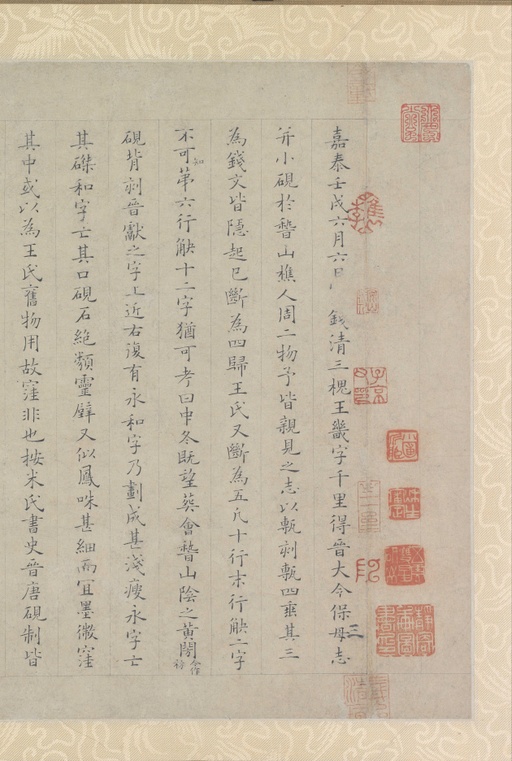 嘉泰壬戌六月六日錢清三槐王畿字千里得晉大令保母志
并小硯於嵇山樵人周二物予皆親見之志以甎刻甎四垂其三
為錢文皆隱起已斷為四歸王氏又斷為五凡十行末行缺二字
不可知第六行缺十二字猶可考曰中冬既望葬會嵇山陰之黃閍
硯背刻晉獻之字上近右復有永和字乃劃成甚淺瘦永字亡
其磔和字亡其口硯石絕類靈壁又似鳳咮甚細而宜墨微窪
其中或以為王氏舊物用故窪非也按米氏書史晉唐硯制皆